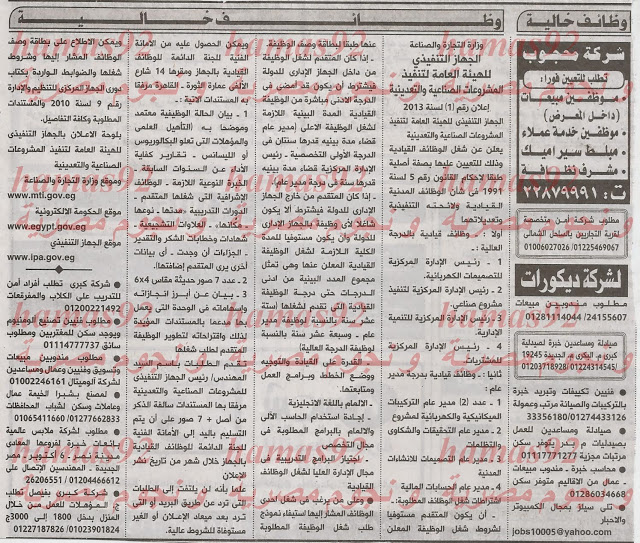 وظائف خالية
شركة محبوب
تطلب للتعيين فوراً:
موظفين مبيعات
(داخل المعرض)
موظفين خدمة عملاء
مبلط سيراميك
مشرف نظافة
ت: ٢٢٨٧٩٩٩١
مطلوب شركة أمن متخصصة
لقرية التجاريين بالساحل الشمالى
01006027026 /01225469067
لشركة ديكورات
مطلوب مندوبين مبيعات
01281114044 /24155607
صيادلة ومساعدين خبرة لصيدلية
كبرى م. البكرى م. الجديدة 19245
01203718928 /01224314545
- فنيين تكييفات وتبريد خبرة
بالتركيبات والصيانة مرتب وعمولة
33356180/01274433126
- صيادلة ومساعدين للعمل
01117791277
- محاسب خبرة - مندوب مبيعات
01286034668
- تلى سيلز بمجال الكمبيوتر والأحبار
jobs10005@yahoo.com
وظائف خالية
وزارة التجارة والصناعة
الجهاز التنفيذى
للهيئة العامة لتنفيذ
المشروعات الصناعية والتعدينية
إعلان رقم (1) لسنة 2013
الجهاز التنفيذى للهيئة العامة لتنفيذ
المشروعات الصناعية والتعدينية
يعلن عن شغل الوظائف الآتية
وذلك للتعيين بها بصفة أصلية
طبقا لأحكام القانون رقم 5 لسنة
1991 فى شأن الوظائف المدنية
القيادية ولائحته التنفيذية
وتعديلاتها
أولا - وظائف قيادية بالدرجة
العالية:
1 - رئيس الإدارة المركزية
للتصميمات الكهربائية.
2 - رئيس الإدارة المركزية لتنفيذ
مشروع صناعى.
3 - رئيس الإدارة المركزية للتنمية
4 - رئيس الإدارة المركزية
للمشتريات
ثانيا - وظائف قيادية بدرجة مدير
عام:
1 - عدد (2) مدير عام التركيبات
الميكانيكية والكهربائية للمشروع
2 - مدير عام التحقيقات والشكاوى
والتظلمات
3 - مدير عام التصميمات للإنشاءات
المدنية
4 - مدير عام الحسابات المالية
اشتراطات شغل الوظائف المعلن
- أن يكون المتقدم مستوفيا
لشروط شغل الوظيفة المعلن
عنها طبقا لبطاقة وصف الوظيفة.
- إذا كان المتقدم لشغل الوظيفة
من داخل الجهاز الإدارى للدولة
فيشترط أن يكون قد أمضى فى
الدرجة الأدنى مباشرة من الوظائف
القيادية المدة البينية اللازمة
لشغل الوظيفة الأعلى (مدير عام
قضاء مدة بينيه قدرها سنتين فى
الدرجة الأولى التخصصية - رئيس
إدارة مركزية قضاء مدة بينيه
قدرها سنة فى درجة مدير عام).
- إذا كان المتقدم من خارج الجهاز
الإدارى للدولة فيشترط ألا يكون
شاغلا لأى وظيفة بالجهاز الإدارى
للدولة وأن يكون مستوفيا للمدد
الكلية اللازمة لشغل الوظيفة
القيادية المعلن عنها وهى تمثل
الدرجات حتى بدرجة الوظيفة
القيادية التى تتقدم لشغلها (ستة
عشر سنة بالنسبة لوظيفة مدير
عام - وسبعة عشر سنة بالنسبة
لوظيفة الدرجة العالية).
- القدرة على القيادة والتوجيه
ووضع الخطط وبرامج العمل
ومتابعتها.
- الإلمام باللغة الانجليزية
- إجادة استخدام الحاسب الآلى
- اجتياز البرامج التدريبية فى
مجال التخصص
- اجتياز البرامج المطلوبة فى
مجال الإدارة العليا لشغل الوظائف
القيادية
- وعلى من يرغب فى شغل احدى
هذه الوظائف التقدم بطلب على
طلب شغل الوظيفة المطلوبة
ويمكن الحصول عليه من الأمانة
الفنية للجنة الدائمة للوظائف
القيادية بالجهاز ومقرها 14 شارع
ألفى عمارة الثورة - القاهرة مرفقا
به المستندات الآتية:
1 - بيان الحالة الوظيفية معتمد
وموضحا به (التأهيل العلمى
والمؤهلات التى تعلو البكالوريوس
أو الليسانس - تقارير كفاية
الأداء عن السنوات السابقة -
الخبرة النوعية اللازمة - الوظائف
الإشرافية التى شغلها المتقدم -
الدورات التدريبية مدتها ونوعها
مكانها - العلاوات التشجيعية -
شهادات وخطابات الشكر والتقدير
الجزاءات أن وجدت - أى بيانات
أخرى يرى المتقدم إضافتها).
2 - عدد 7 صور حديثة مقاس 4x6
3 - بيان عن أبرز انجازاته
وإسهاماته فى الوحدة التى يعمل
بها مدعما بالمستندات المؤيدة
لذلك واقتراحاته لتطوير الوظيفة
المتقدم لشغلها.
تقدم الطلبات باسم السيد
المهندس / رئيس الجهاز التنفيذى
مرفقا بها المستندات سالفة الذكر
من أصل + 7 صور على أن يتم
التسليم باليد إلى الأمانة الفنية
للجنة الدائمة للوظائف القيادية
بالجهاز خلال شهر من تاريخ نشر
الإعلان
علما بأنه لن يلتفت إلى الطلبات
التى ترد عن طريق البريد أو التى
ترد بعد ميعاد الإعلان أو الغير
مستوفاة للشروط عالية.
ويمكن الاطلاع على بطاقة وصف
الوظائف المشار إليها وشروط
شغلها والضوابط الواردة بكتاب
دورى الجهاز المركزى للتنظيم والإدارة
رقم 9 لسنة 2010 والمستندات
المطلوبة وكافة التفاصيل.
بلوحة الاعلان بالجهاز التنفيذى
للهيئة العامة لتنفيذ المشروعات
الصناعية والتعدينية
وموقع وزارة التجارة والصناعة
www.mti.gov.eg
موقع الحكومة الالكترونية
www.egypt.gov.eg
موقع الجهاز التنفيذى
www.ipa.gov.eg
شركة كبرى تطلب أفراد أمن
للتدريب على الكلاب والمفرقعات
01200221492
مطلوب فنيين تصنيع ألومنيوم
ويوجد سكن للمغتربين ومطلوب
سائق 01114777737
مطلوب مندوبين مبيعات
وتسويق وفنيين وعمال ومساعدين
لشركة ألوميتال 01002246161
لمصنع بشبرا الخيمة عمال
وعاملات وسكن لشباب المحافظات
01065411660 /01277662833
مطلوب لشركة ملابس عالمية
بائعات خبرة لفروعها المعادى
- مدينتى - 6 أكتوبر - مصر
الجديدة - المهندسين الإتصال على
26206551 / 01204466612
شركة كبرى بفيصل تطلب
مؤهلات للعمل من خلال
المنزل بدخل 1800 إلى 3000ج
01227187826 /01023901824
hamas92
نجوم مصرية